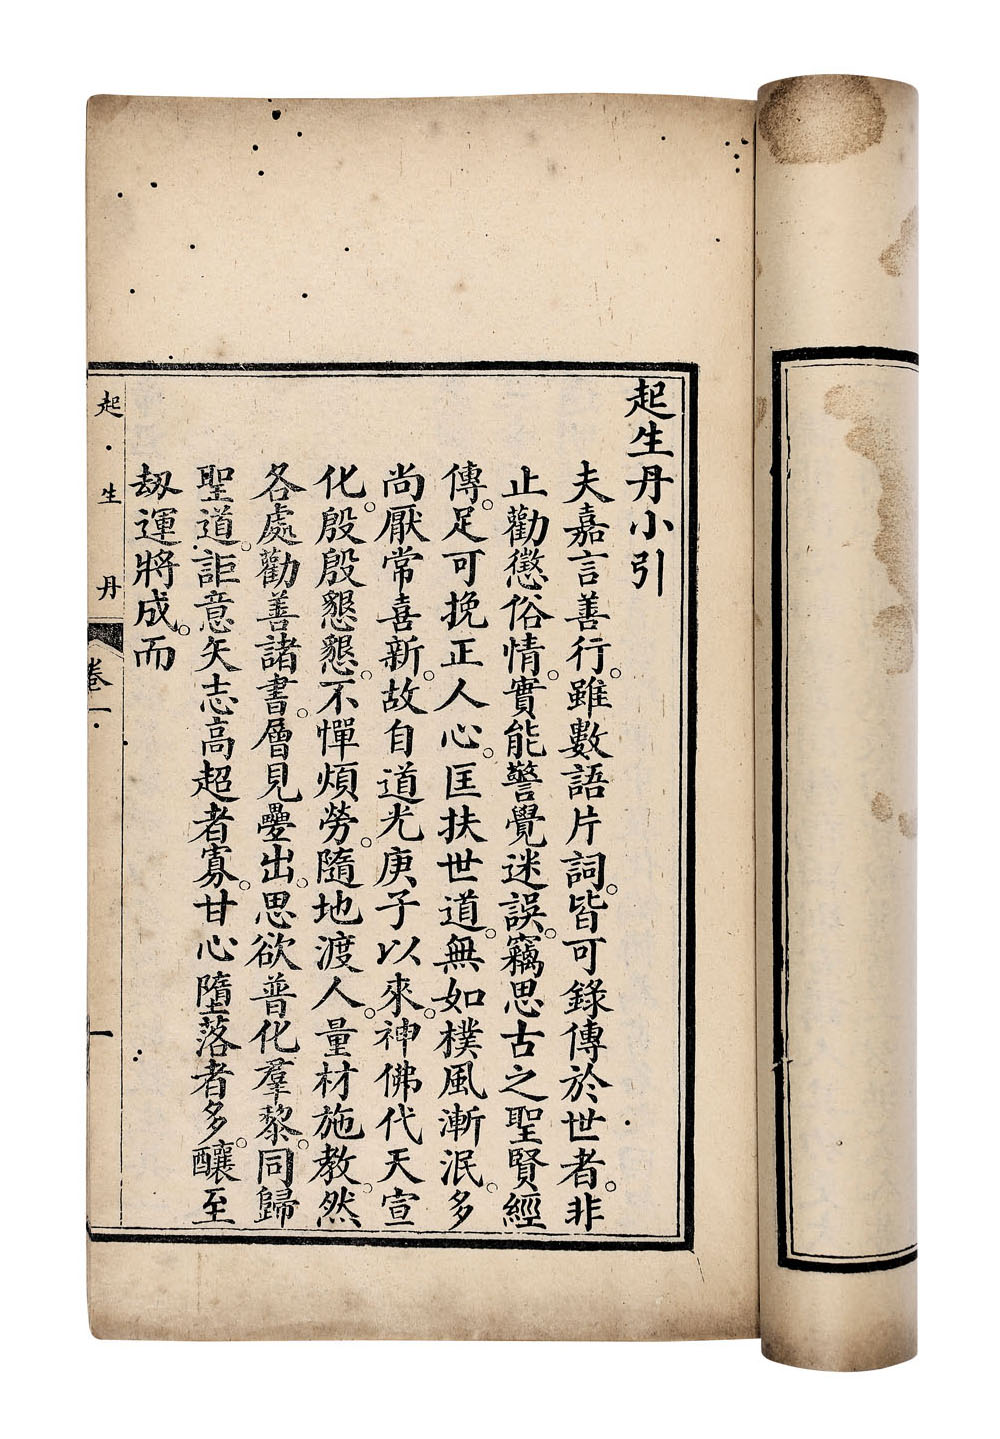 起生丹小引
夫嘉言善行。雖數語片詞。皆可錄傳於世者。非
止勸懲俗情。實能警覺迷誤。竊思古之聖賢經
傳。足可挽正人心。匡扶世道。無如樸風漸泯。多
尚厭常喜新。故自道光庚子以來。神佛代天宣
化。殷殷懇懇。不憚煩勞。隨地渡人。量材施教。然
各處勸善諸書。層見疊出。思欲普化羣黎。同歸
聖道。詎意矢志高超者寡。甘心墮落者多。釀至
刼運將成。而
起生丹
卷一
一